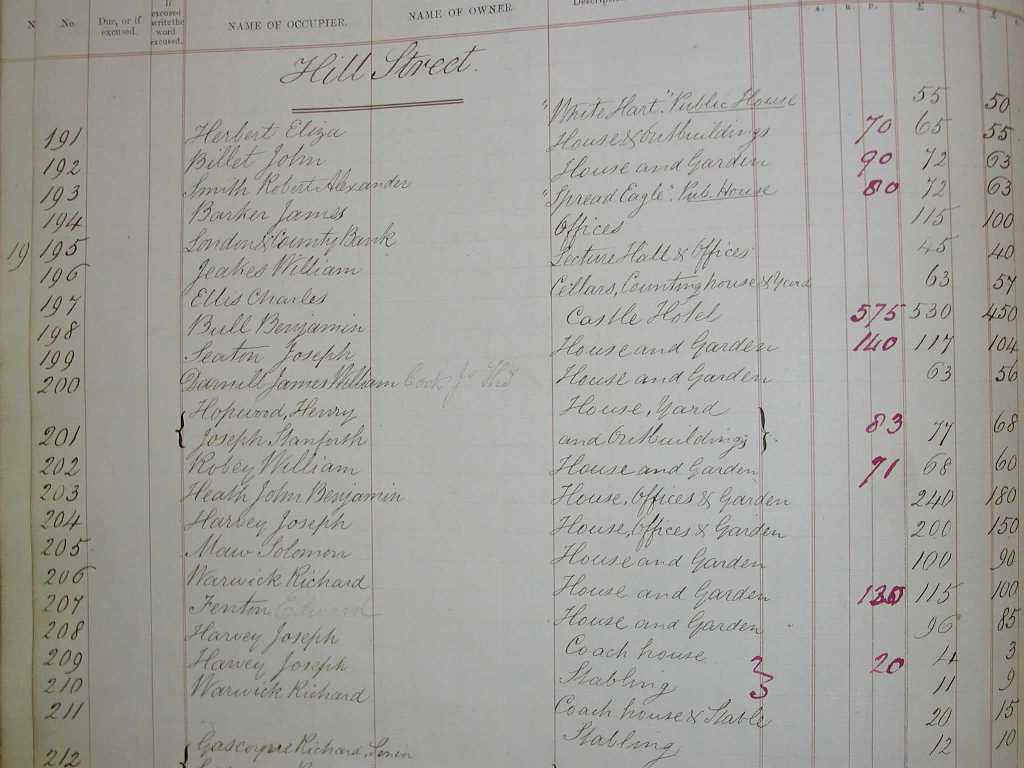 N No. Due, or if excused. If excused write the word excused. NAME OF OCCUPIER. NAME OF OWNER
Hill Street.
191 Herbert Eliza "White Hart" Public House 55 50
192 Billet John House & Outbuildings 70 65 55
193 Smith Robert Alexander House and Garden 90 72 63
194 Barker James "Spread Eagle" Pub. House 80 72 63
19 195 London & County Bank Offices 115 100
196 Jeakes William Lecture Hall & Offices 45 40
197 Ellis Charles Cellars, Counting house & Yard 63 57
198 Bull Benjamin Castle Hotel 575 530 450
199 Seaton Joseph House and Garden 140 117 104
200 Darnill James William House and Garden 63 56
Hopwood, Henry House, Yard
201 Joseph Stanforth and Outbuildings 83 77 68
202 Robey William House and Garden 71 68 60
203 Heath John Benjamin House, Offices & Garden 240 180
204 Harvey Joseph House, Offices & Garden 200 150
205 Maw Solomon House and Garden 100 90
206 Warwick Richard House and Garden 130 115 100
207 Fenton Edward House and Garden 96 85
208 Harvey Joseph Coach house 4 3
209 Harvey Joseph Stabling 20 11 9
210 Warwick Richard Coach house & Stable 20 15
211 Stabling 12 10
212 Gascoyne Richard, Senr